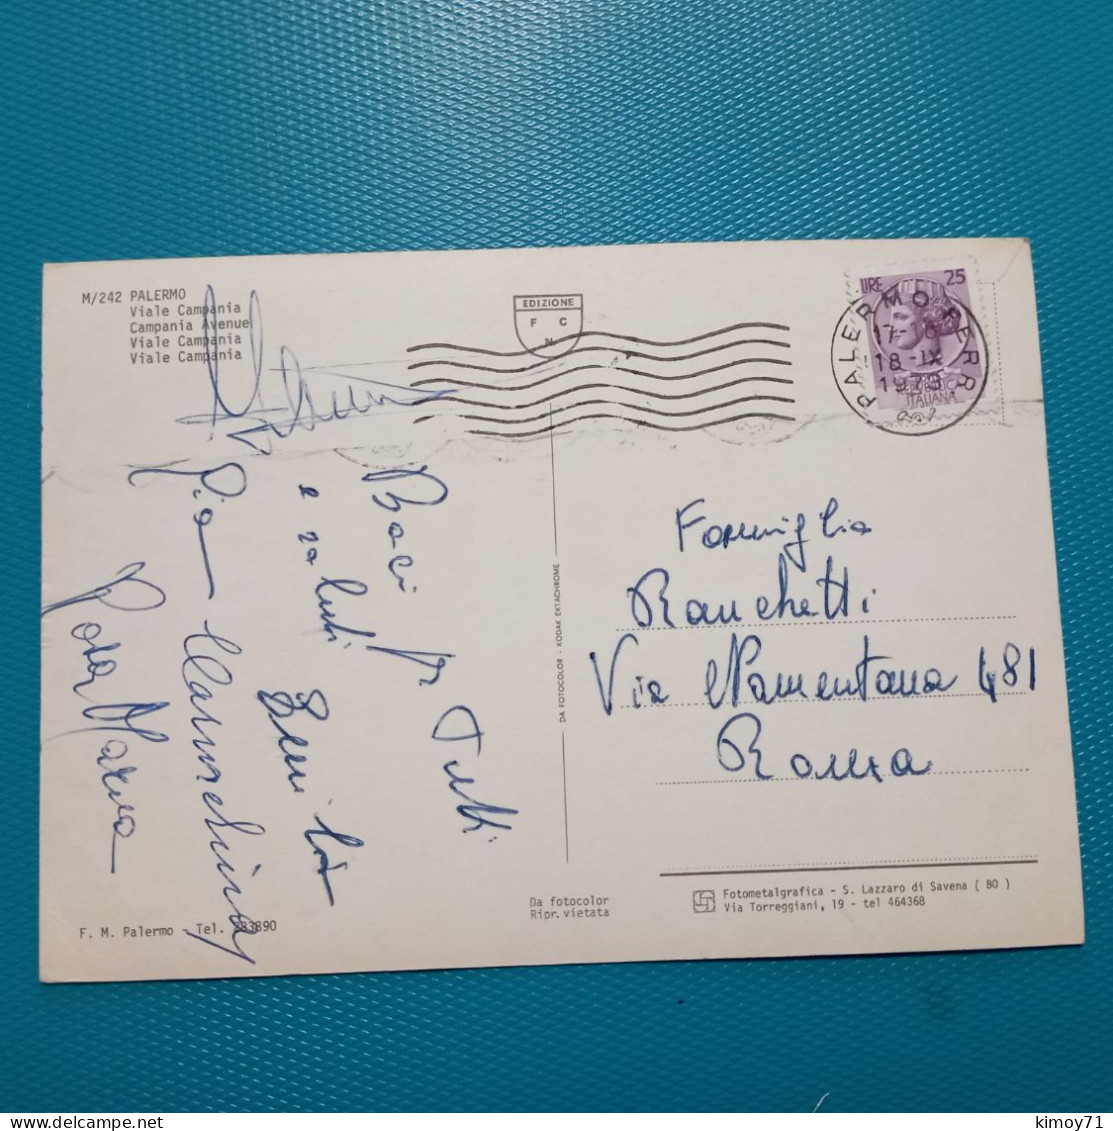 M/242 PALERMO
Viale Campania
Campania Avenue
Viale Campania
Viale Campania
EDIZIONE
F C
N
LIRE 25
ITALIANA
PALERMO FERR.
18-IX
1973
Baci per Tutti
e saluti
Emilia
Pia
Rosa Maria
Famiglia
Ranchetti
Via Nomentana 481
Roma
DA FOTOCOLOR - KODAK EKTACHROME
Da fotocolor
Ripr. vietata
Fotometalgrafica - S. Lazzaro di Savena ( BO )
Via Torreggiani, 19 - tel 464368
F. M. Palermo - Tel.
kimoy71